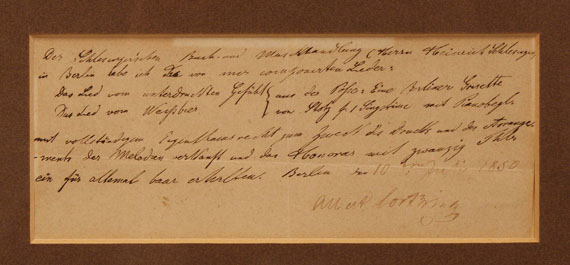 Der Schlesinger'schen Buch- und Musikhandlung (Herrn Heinrich Schlesinger)
in Berlin habe ich von mir componirten Lieder:
Das Lied vom unterdrückten Gefühl } aus der Posse: Eine Berliner Grisette
Das Lied vom Weißbier } von Stotz f. 1 Singstime mit Pianobegl.
mit vollständigem Eigenthumsrecht zum Zweck des Drucks und des Arrange-
-ments der Melodien verkauft und das Honorar mit zwanzig Thlr.
ein für allemal baar erhalten. Berlin 10 Juli 1850
Albert Lortzing